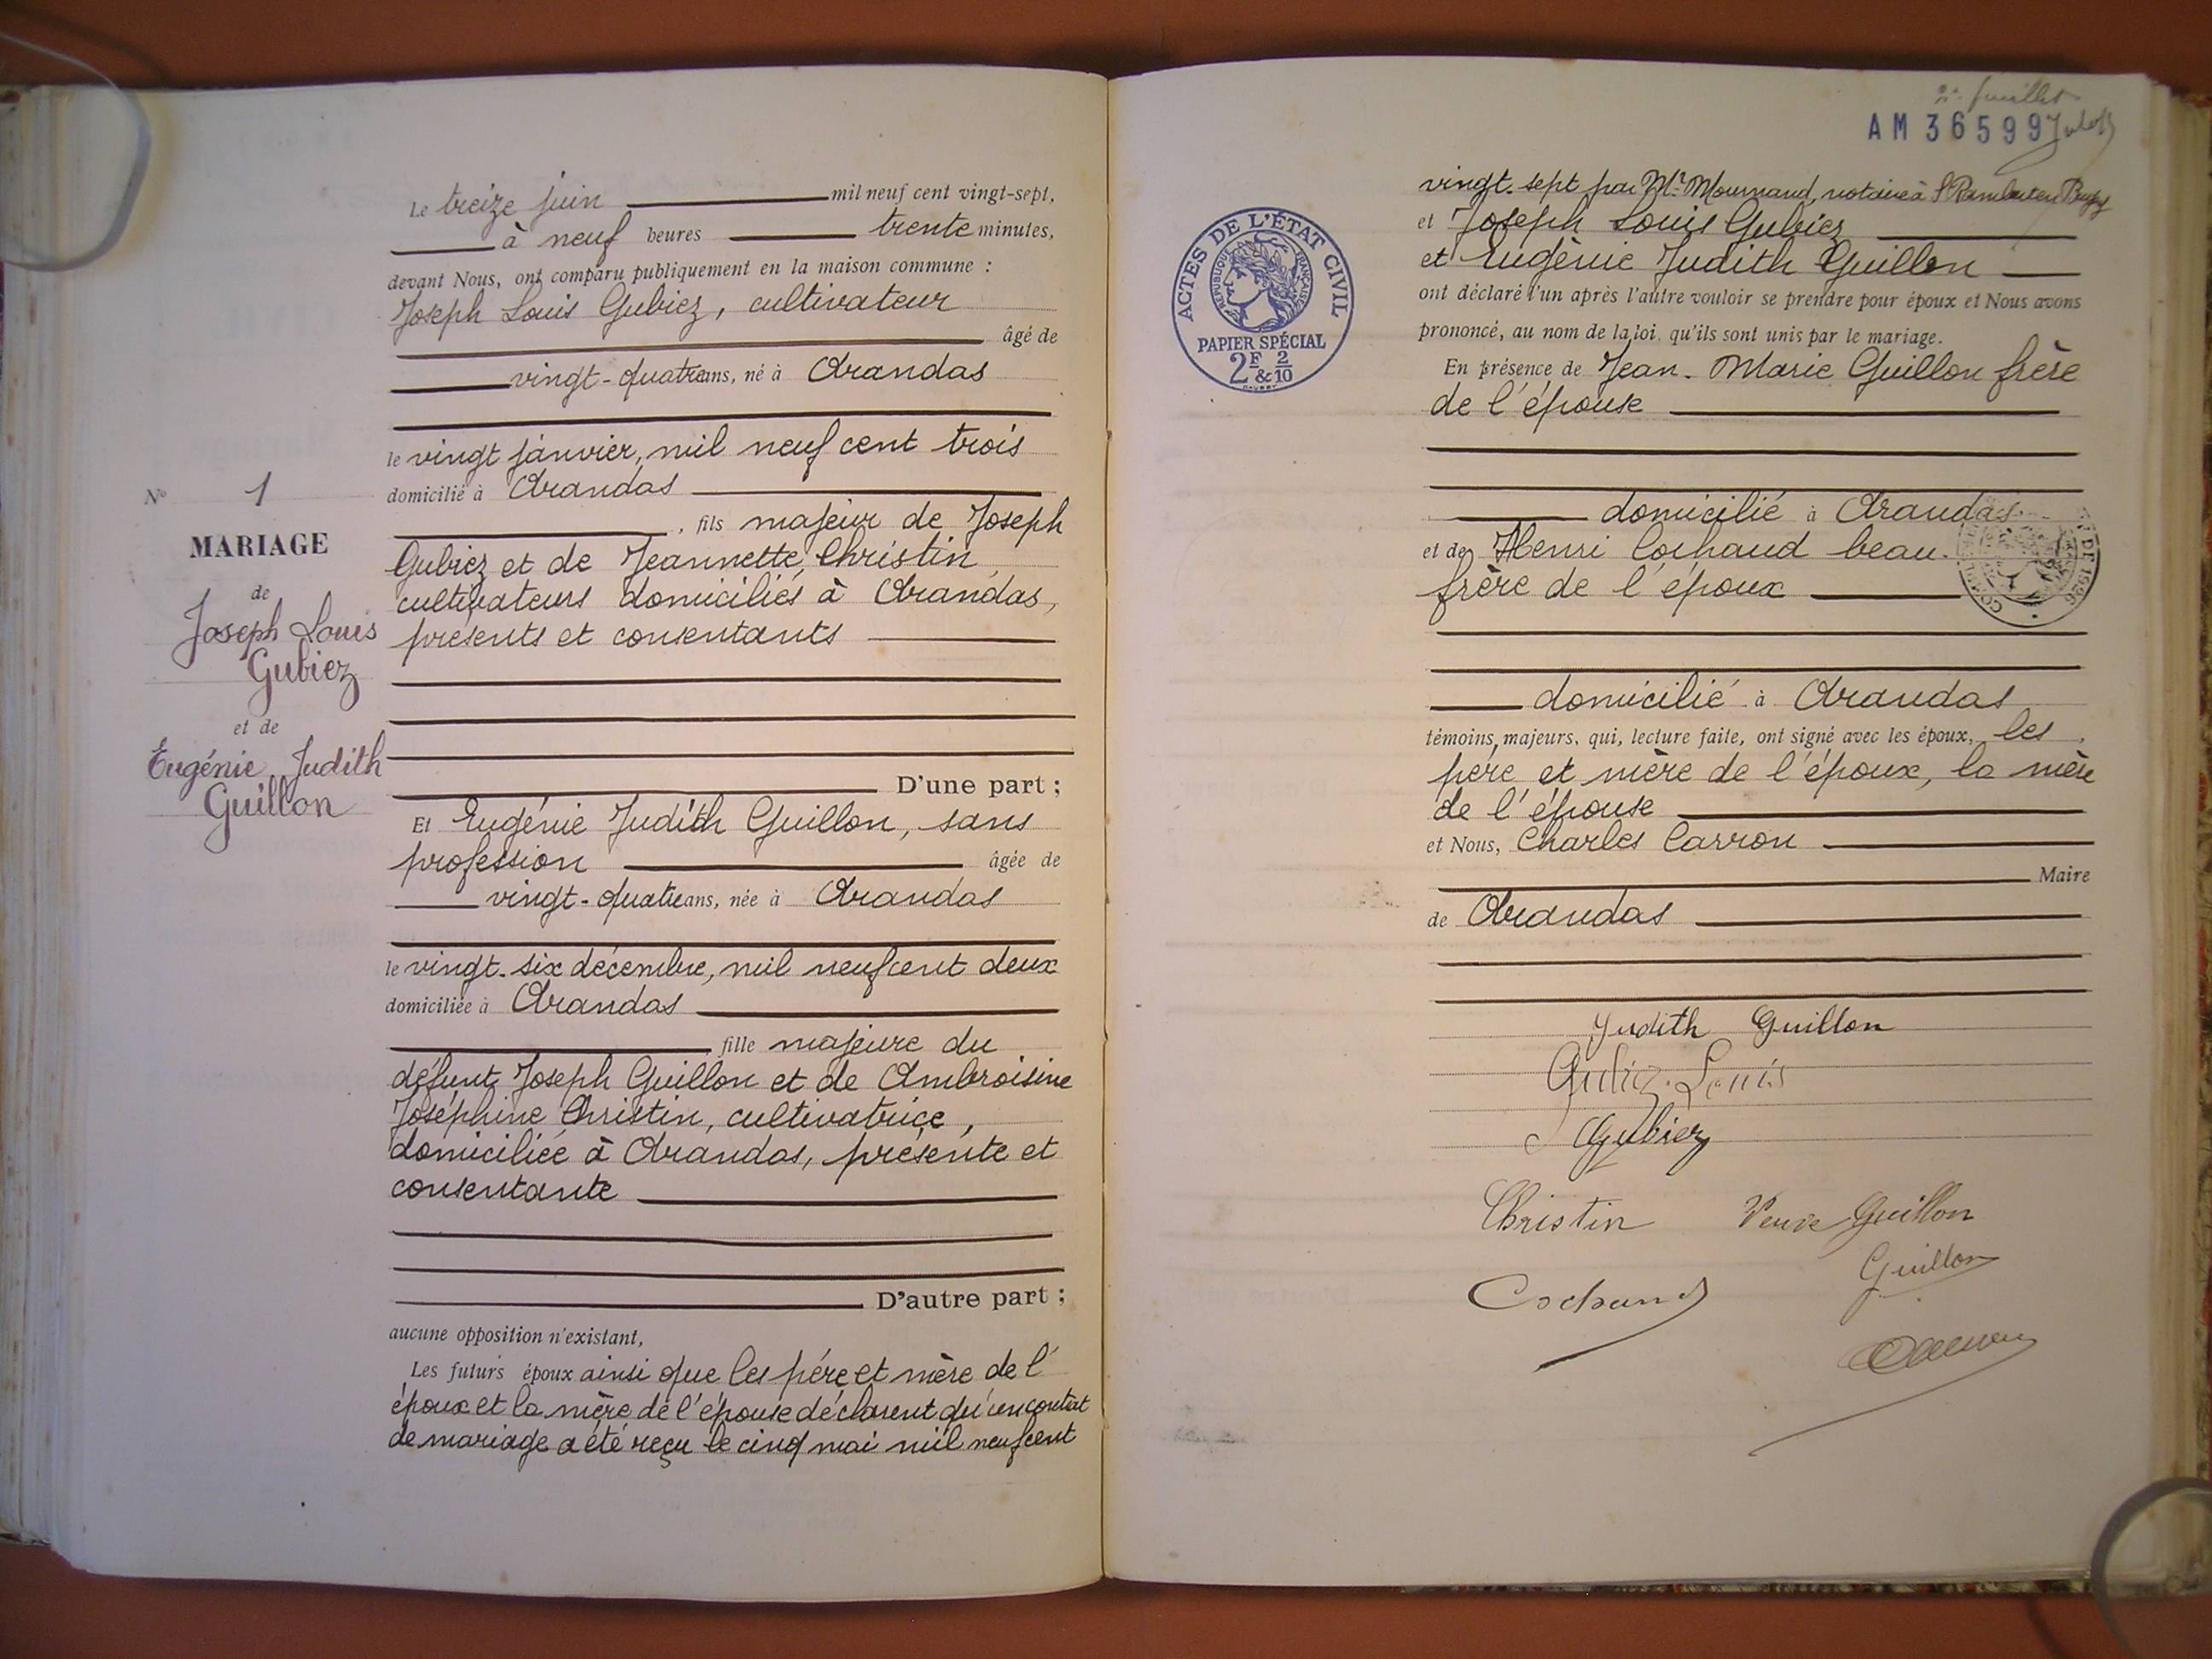 Le treize juin mil neuf cent vingt-sept,
à neuf heures trente minutes,
devant Nous, ont comparu publiquement en la maison commune :
Joseph Louis Gubiez, cultivateur
âgé de
vingt-quatre ans, né à Arandas
le vingt janvier, mil neuf cent trois
domicilié à Arandas
, fils majeur de Joseph
Gubiez et de Jeannette Christin,
cultivateurs domiciliés à Arandas,
présents et consentants
D'une part ;
Et Eugénie Judith Guillon, sans
profession âgée de
vingt-quatre ans, née à Arandas
le vingt-six décembre, mil neuf cent deux
domiciliée à Arandas
, fille majeure du
défunt Joseph Guillon et de Ambroisine
Joséphine Christin, cultivatrice,
domiciliée à Arandas, présente et
consentante
D'autre part ;
aucune opposition n'existant,
Les futurs époux ainsi que les père et mère de l'
époux et la mère de l'épouse déclarent qu'un contrat
de mariage a été reçu le cinq mai mil neuf cent
No 1
MARIAGE
de
Joseph Louis
Gubiez
et de
Eugénie Judith
Guillon
2e feuillet
AM 36599
vingt-sept par Me Mournand, notaire à St Rambert en Bugey
et Joseph Louis Gubiez
et Eugénie Judith Guillon
ont déclaré l'un après l'autre vouloir se prendre pour époux et Nous avons
prononcé, au nom de la loi, qu'ils sont unis par le mariage.
En présence de Jean-Marie Guillon frère
de l'épouse
domicilié à Arandas
et de Henri Cochaud beau-
frère de l'époux
domicilié à Arandas
témoins majeurs, qui, lecture faite, ont signé avec les époux, les
père et mère de l'époux, la mère
de l'épouse
et Nous, Charles Carron
Maire
de Arandas
Judith Guillon
Gubiez Louis
J Gubiez
Christin Veuve Guillon
Guillon
Cochaud
ACTES DE L'ÉTAT CIVIL
RÉPUBLIQUE FRANÇAISE
PAPIER SPÉCIAL
2F & 2/10
DE 1926